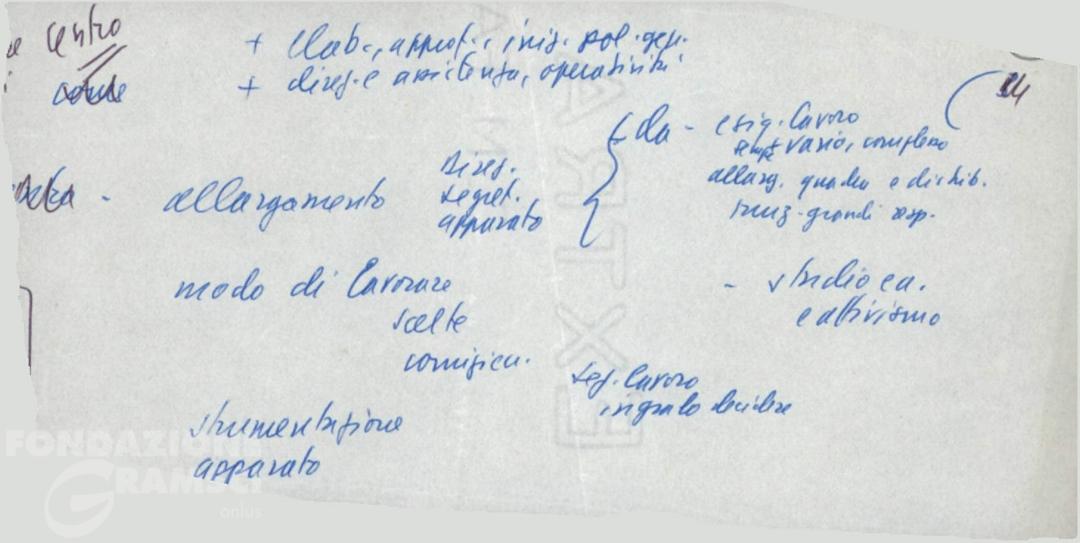 centro
+ elab., approf., iniz. pol. gen.
+ direz. e assistenza, operatività
24
allargamento
Direz.
Segret.
apparato
da - esig. lavoro
sempre vario, complesso
allarg. quadro e distrib.
grandi resp.
modo di lavorare
scelte
- studio ea.
e attivismo
Seg. lavoro
ingrato decidere
strumentazione
apparato
FONDAZIONE
GRAMSCI
onlus
EXTRA